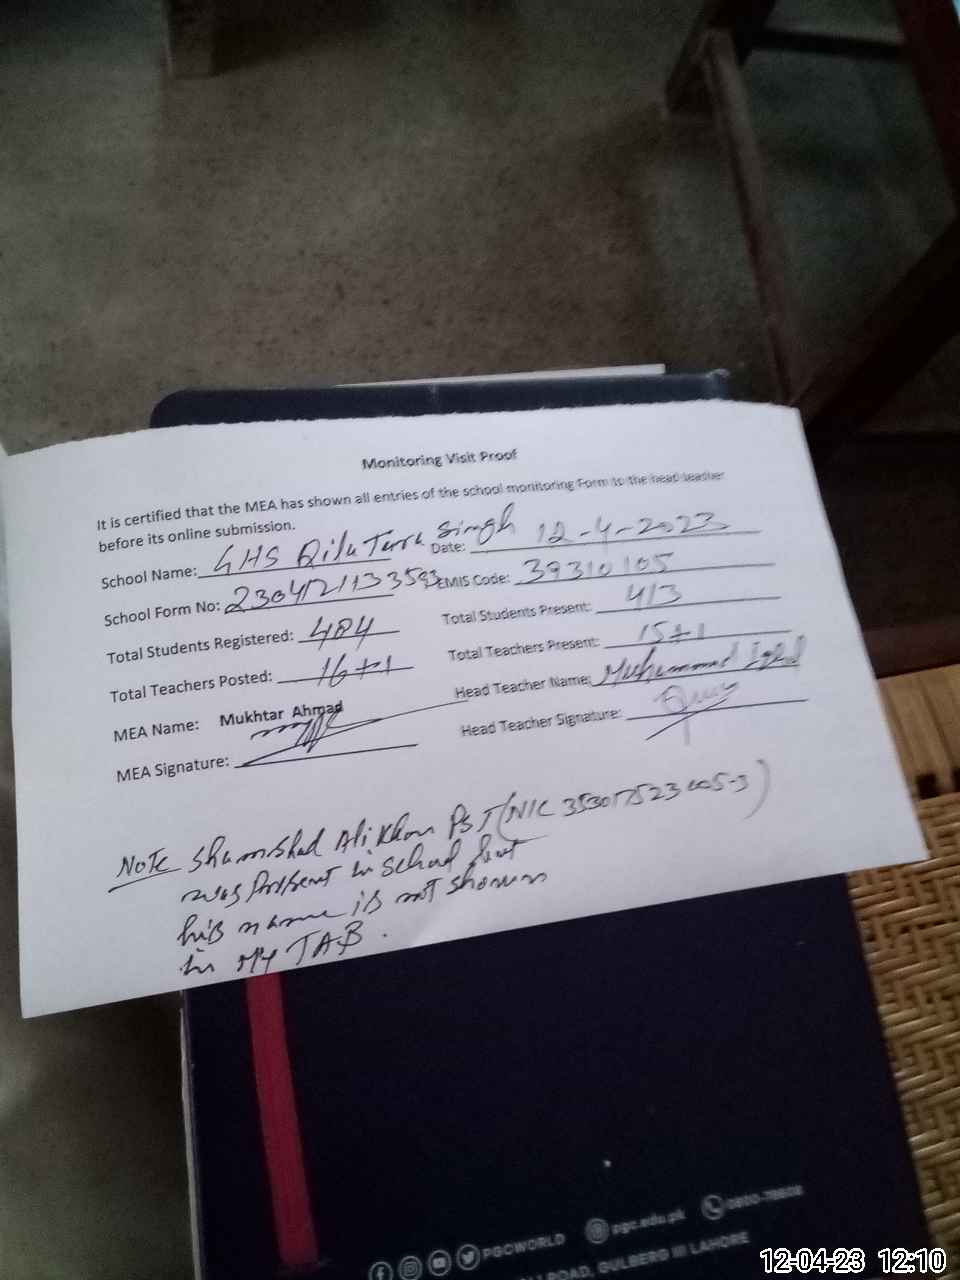 Monitoring Visit Proof
It is certified that the MEA has shown all entries of the school monitoring Form to the head teacher
before its online submission.
School Name: GHS Qila Tara Singh Date: 12-4-2023
School Form No: EMIS Code: 39310105
Total Students Registered: 484 Total Students Present: 413
Total Teachers Posted: 16+1 Total Teachers Present: 15+1
MEA Name: Mukhtar Ahmad Head Teacher Name: Muhammad Iqbal
MEA Signature: Head Teacher Signature:
NOTE Shamshad Ali Khan PST (NIC
was Present in School but
his name is not shown
in My TAB.
PGCWORLD pgc.edu.pk 0800-78608
ROAD, GULBERG III LAHORE
12-04-23 12:10